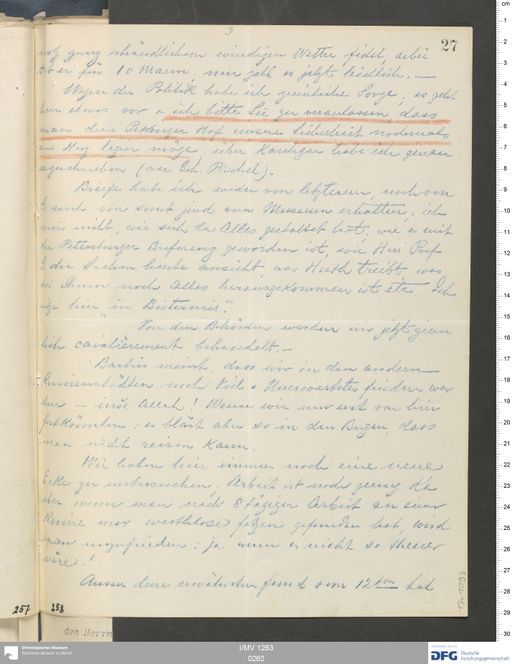 3
27
trotz ganz schändlichem windigen Wetter fidel, arbei
für 10 Mann, nur geht es jetzt leidlich. —
Wegen der Politik habe ich ziemliche Sorge, es geht
hier etwas vor & ich bitte Sie zu veranlassen, dass
man dem Pekinger Hof unsere Sicherheit nochmals
ans Herz legen möge, über Kaschgar habe ich genau
geschrieben (an Geh. Pischel).
Briefe habe ich weder von letzterem, noch von
noch von sonst jemd vom Museum erhalten, ich
weiss nicht, wie sich das Alles gestaltet hat, wie es mit
der Petersburger geworden ist, wie Herr Prof
G die Sachen heute ansieht, was Huth treibt, was
bei Ihnen noch Alles herausgekommen ist etc. Ich
hier „in Bisterniss“.
Von den Behörden werden wir jetzt ziem
lich cavalièrement behandelt. —
Bartus meint, dass wir in den andern
Ruinenstädten noch Viel & Unerwartetes finden wer
den — inše Allah! Wenn wir nur erst von hier
fortkönnten: es bläst aber so in den Bergen, dass
man nicht reisen kann.
Wir haben hier immer noch eine neue
Ecke zu untersuchen. Arbeit ist noch genug da
aber wenn man nach 8 tägiger Arbeit an einer
Ruine nur werthlose Fetzen gefunden hat wird
man unzufrieden: ja wenn es nicht so theuer
wäre!
Ausser dem erwähnten Fund vom 12ten hat
TA 1093
257
258
den Herrn
Ethnologisches Museum
Staatliche Museen zu Berlin
I/MV 1263
0262
DFG
Deutsche
Forschungsgemeinschaft
cm
1
2
3
4
5
6
7
8
9
10
11
12
13
14
15
16
17
18
19
20
21
22
23
24
25
26
27
28
29
30